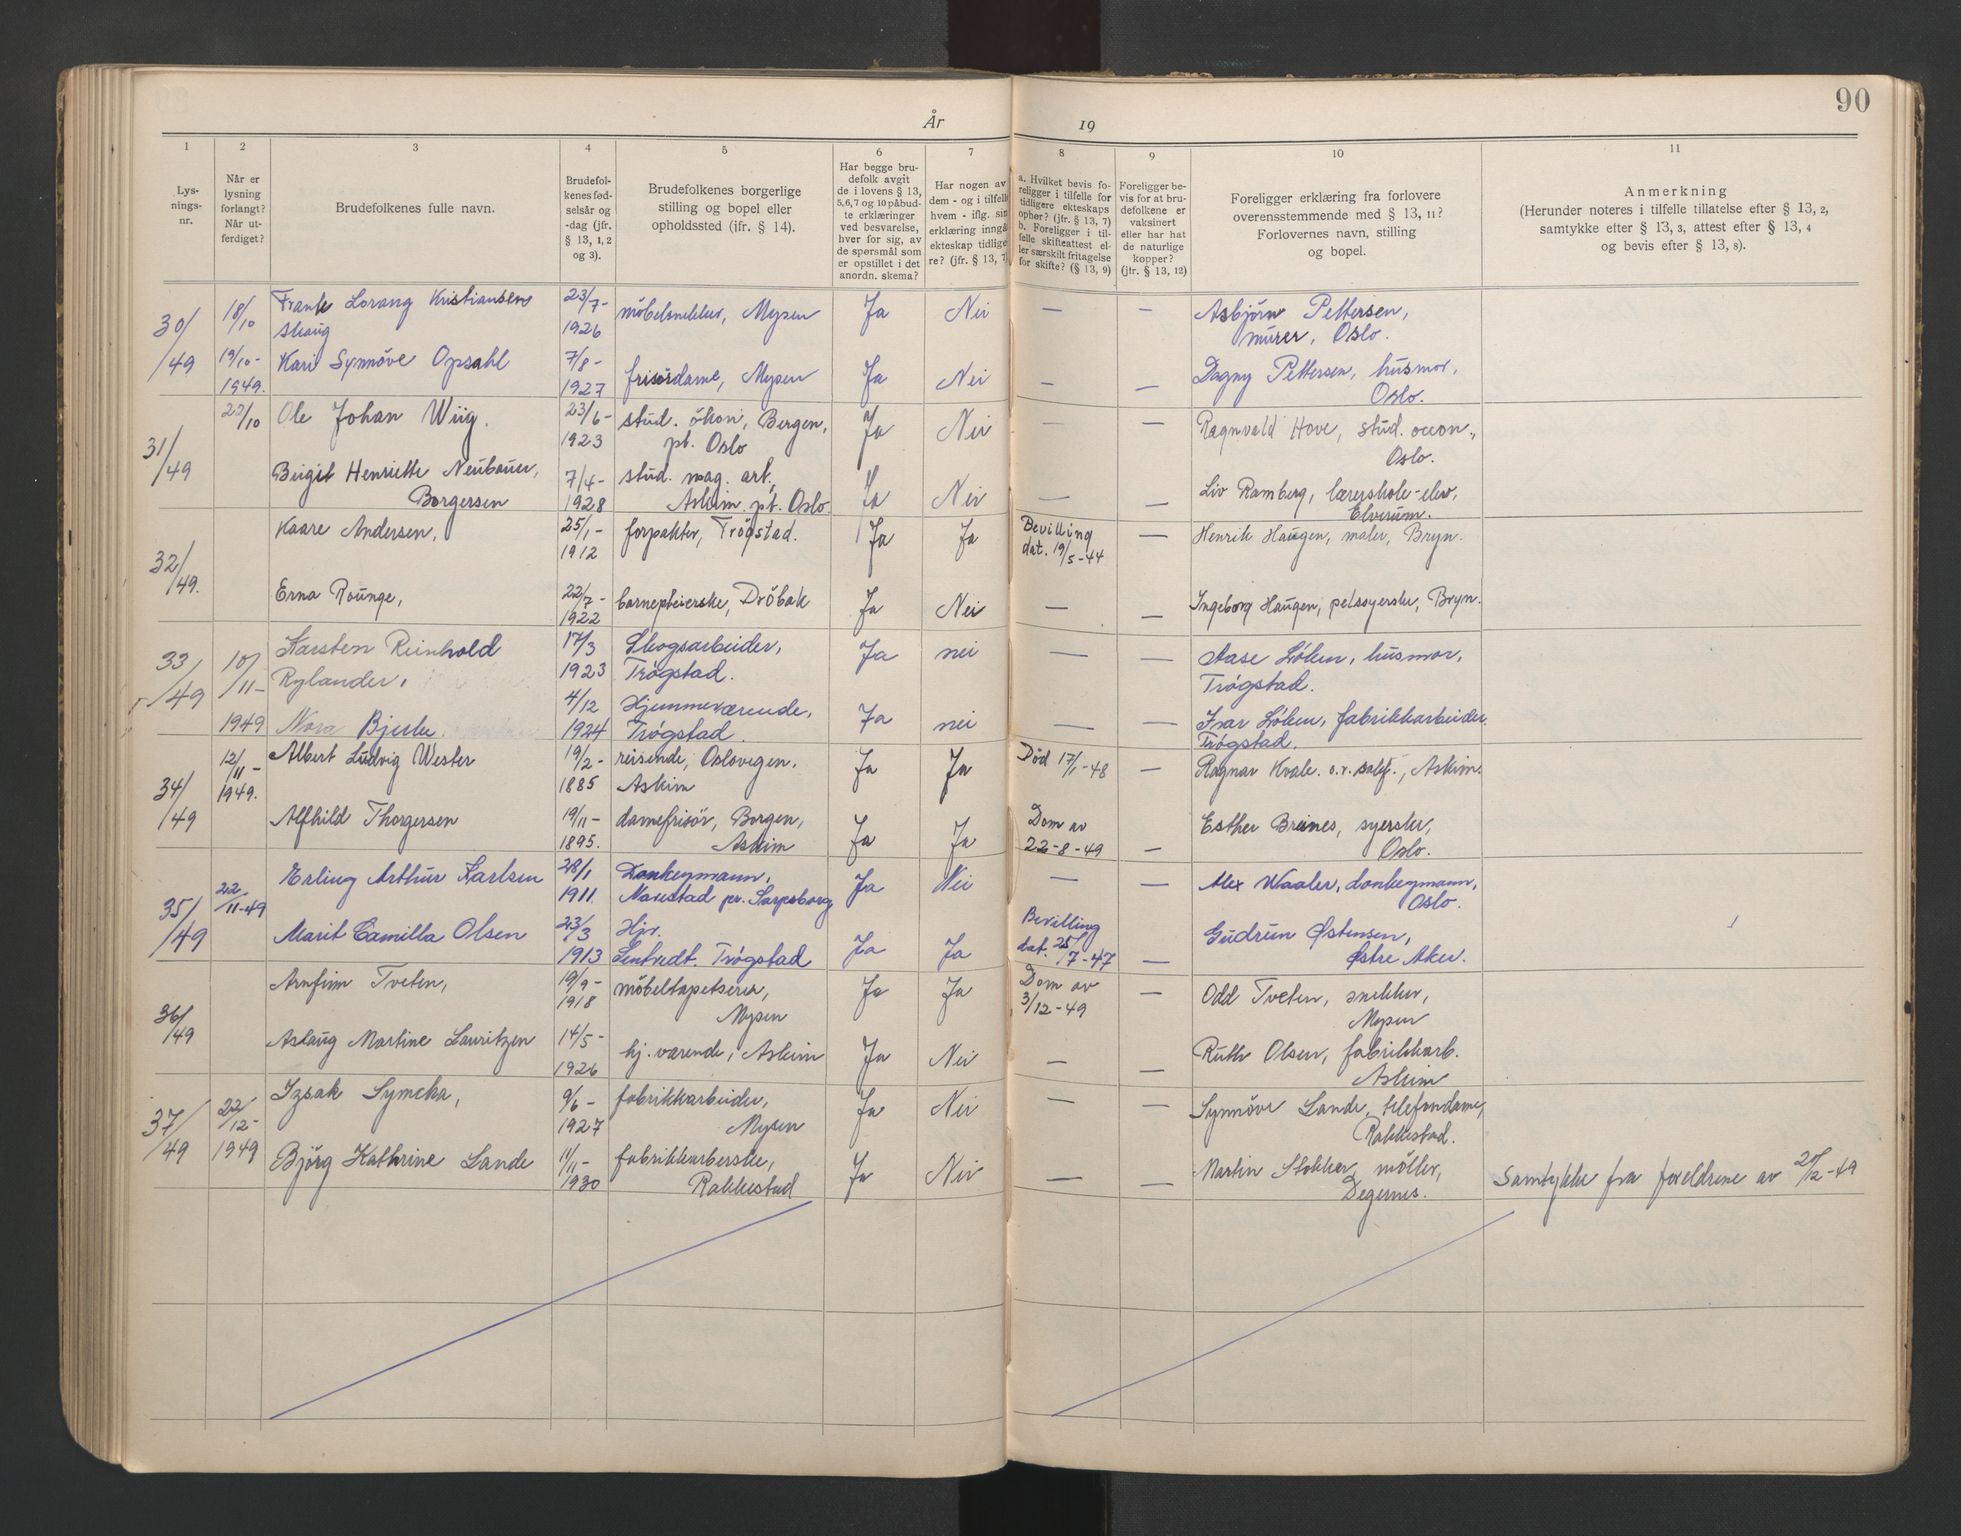 90
År 19
1 2 3 4 5 6 7 8 9 10 11
Lys-
nings-
nr.
Når er
lysning
forlangt?
Når ut-
ferdiget?
Brudefolkenes fulle navn.
Brudefol-
kenes fød-
selsår og
-dag (jfr.
§ 13, 1, 2
og 3).
Brudefolkenes borgerlige
stilling og bopel eller
opholdssted (jfr. § 14).
Har begge bru-
defolk avgit
de i lovens § 13,
5,6,7 og 10 påbud-
te erklæringer
ved besvarelse,
hver for sig, av
de spørsmål som
er opstillet i det
anordn. skema?
Har nogen av
dem - og i tilfelle
hvem - iflg. sin
erklæring inngå
ekteskap tidlige-
re? (jfr. § 13, 7
a. Hvilket bevis fo-
religger i tilfelle for
tidligere ekteskaps
ophør? (jfr. § 13, 7)
b. Foreligger i til-
felle skifteattest el-
ler særskilt fritagelse
for skifte? (§ 13, 9)
Foreligger be-
vis for at bru-
defolkene er
vaksinert
eller har hat
de naturlige
kopper?
(jfr. § 13, 12)
Foreligger erklæring fra forlovere
overensstemmende med § 13, 11?
Forlovernes navn, stilling
og bopel.
Anmerkning
(Herunder noteres i tilfelle tillatelse efter § 13, 2,
samtykke efter § 13, 3, attest efter § 13, 4
og bevis efter § 13, 8).
30/49 18/10 Frank Lorang Kristiansen 23/7- møbelsnekker, Mysen Ja Nei — — Asbjörn Pettersen,
Skaug 1926 murer, Oslo.
19/10- Kari Synnöve Opsahl 7/8- frisördame, Mysen Ja Nei — — Dagny Pettersen, husmor,
1949. 1927 Oslo.
31/49 20/10 Ole Johan Wiig. 23/6- stud. ökon, Bergen, Ja Nei — — Ragnvald Hove, stud. occon.,
1923 pt. Oslo Oslo.
Birgit Henriette Neubauer, 7/4- stud. mag. art, Ja Nei — — Liv Ramberg, lærerskole-elev,
Borgersen 1928 Askim pt. Oslo. Elverum.
32/49. Kaare Andersen, 25/1- forpakter, Trögstad. Ja Ja Bevilling — Henrik Haugen, maler, Bryn.
1912 dat. 19/5-44
Erna Rounge, 22/7- barnepleierske, Dröbak Ja Nei — — Ingeborg Haugen, pelssyerske, Bryn.
1922
33/49 10/11- Karsten Reinhold 17/3 Skogsarbeider, Ja nei — — Aase Løken, husmor,
Rylander, 1923 Trøgstad. Trøgstad.
1949 Nora Bjerke 4/12 Hjemmeværende, Ja nei — — Ivar Løken, fabrikkarbeider
1924 Trøgstad. Trøgstad.
34/49 12/11- Albert Ludvig Wester 19/2- reisende, Oslovegen, Ja Ja Död 17/1-48 — Ragnar Kvale. o.r. salgf., Askim.
1949. 1885 Askim
Alfhild Thorgersen 19/11- damefrisör, Borgen, Ja Ja Dom av — Esther Breines, syerske,
1895. Askim 22-8-49 Oslo.
35/49 22/11-49 Erling Arthur Karlsen 28/1 Donkeymann, Ja Nei — — Alex Waaler, donkeymann,
1911. Navestad pr. Sarpsborg Oslo.
Marit Camilla Olsen 23/3 Hjv. Ja Ja Bevilling — Gudrun Østensen,
1913 Sentvedt. Trøgstad dat. 25/7-47 Østre Aker.
36/49 Arnfinn Tveten, 19/9- möbeltapetserer, Ja Ja Dom av — Odd Tveten, snekker,
1918 Mysen 3/12-49 Mysen
Aslaug Martine Lauritzen 14/5- hj. værende, Askim Ja Nei — — Ruth Olsen, fabrikkarb.
1926 Askim
37/49 22/12- Izsak Symcha, 9/6- fabrikkarbeider, Ja Nei — — Synnöve Lande, telefondame,
1927 Mysen Rakkestad.
1949 Björg Kathrine Lande 11/11- fabrikkarberske, Ja Nei — — Martin Stokker, möller, Samtykke fra foreldrene av 20/12-49
1930 Rakkestad Degernes.